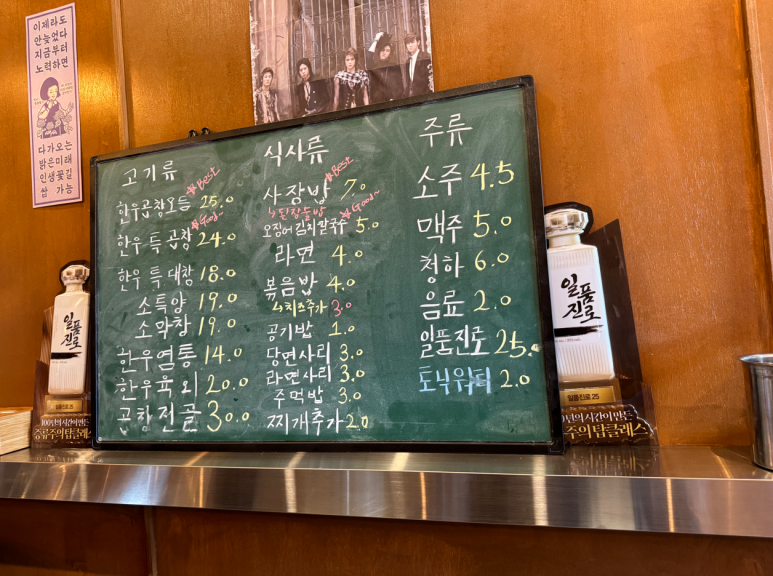 이제라도
안늦었다
지금부터
노력하면
다가오는
밝은미래
인생꽃길
쌉 가능
고기류
☆Best
한우곱창모듬 25.0
☆Good~
한우 특 곱창 24.0
한우 특 대창 18.0
소특양 19.0
소막창 19.0
한우염통 14.0
한우육회 20.0
곱창전골 30.0
식사류
☆Best
사장밥 7.0
↳된장술밥
☆Good~
오징어김치말국수 5.0
라면 4.0
볶음밥 4.0
↳치즈추가 3.0
공기밥 1.0
당면사리 3.0
라면사리 3.0
주먹밥 3.0
찌개추가 2.0
주류
소주 4.5
맥주 5.0
청하 6.0
음료 2.0
일품진로 25.0
토닉워터 2.0
일품
진로
일품진로 25
100년의시간이만든
증류주의탑클래스
일품
진로
일품진로 25
0년의시간이만든
주의탑클래스